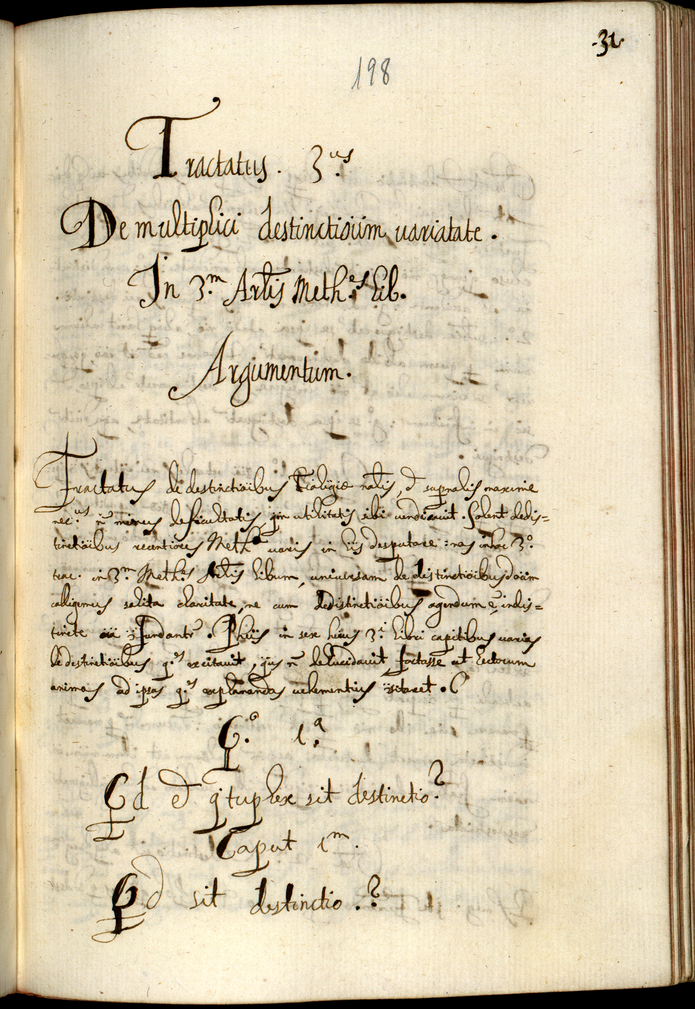 198
.31.
Tractatus. 3.us
De multiplici destinctioum variatate.
In 3.m Artis Meth.es Lib.
Argumentum.
Tractatus de destinctioibus Theologiæ nalis, & supnalis maxime
nec.us n̄ minus difficultatis utilitatis sibi vendicavit. Solent dedis=
tinctioibus recentiores Meth. variis in lis desputare: nos in hoc 3.o
trac. in 3.m Meth.es Artis librum, universam de destinctioibus doām
colligemus solita claritate, ne cum dedistinctioibus agendum ē, indis=
tincte fundantr. Phūs in sex huius 3.i libri capitibus varias
de destinctioibus q.es excitavit, n̄ delucidavit, fortasse ut Lectorum
animos ad ipsas q.es explanandas vehementius
Q.o 1.a
Qd & qtuplex sit destinctio?
Caput 1.m.
Qd sit destinctio.?